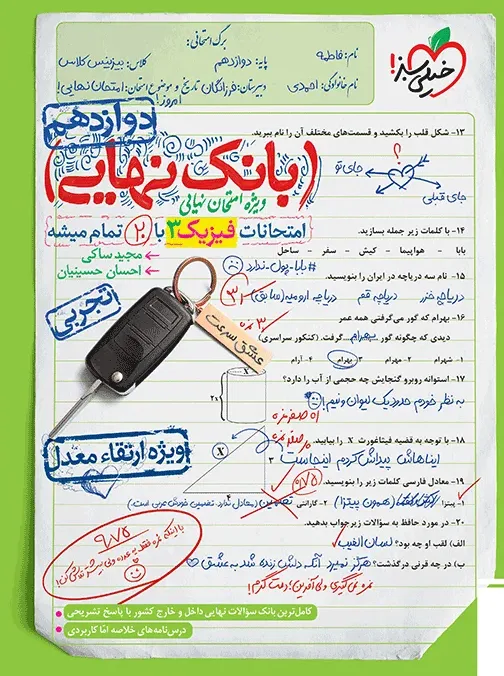 خیلی سبز!
برگ امتحانی:
نام: فاطمه
پایه: دوازدهم
کلاس: بیزینس کلاس
نام خانوادگی: احمدی
دبیرستان: فرزانگان
تاریخ و موضوع امتحان: امتحان نهایی!
امروز!
دوازدهم
۱۳- شکل قلب را بکشید و قسمت‌های مختلف آن را نام ببرید.
؟
جای تو
جای قبلی
(بانک نهایی)
ویژه امتحان نهایی
امتحانات فیزیک ۳ با ۲۰ تمام میشه
مجید ساکی
احسان حسینیان
۱۴- با کلمات زیر جمله بسازید.
بابا - هواپیما - کیش - سفر - ساحل
#بابا-پول-ندارد
۱۵- نام سه دریاچه در ایران را بنویسید.
دریاچه خزر
دریاچه قم
دریاچه ارومیه (سابق)
تجربی
۱۶- بهرام که گور می‌گرفتی همه عمر
دیدی که چگونه گور بهرام گرفت. (کنکور سراسری)
۱- شهرام ۲- مهرام ۳- بهرام ۴- آرام
عشق سرعت
۱۷- استوانه روبرو گنجایش چه حجمی از آب را دارد؟
به نظر خودم حدود یک لیوان و نیم!
x
۲x
ویژه ارتقاء معدل
۱۸- با توجه به قضیه فیثاغورث x را بیابید.
ایناهاش پیداش کردم اینجاست
x
۳
۴
۱۹- معادل فارسی کلمات زیر را بنویسید.
۰/۷۵
۱- پیتزا
(همون پیتزا)
۲- گارانتی
تضمین
۲۰- در مورد حافظ به سؤالات زیر جواب بدهید.
الف) لقب او چه بود؟ لسان الغیب
ب) در چه قرنی درگذشت؟ هرگز نمیرد آنکه دلش زنده شد به عشق
نمره نمی‌گیری ولی آفرین! دمت گرم!
۹/۷۵
کامل‌ترین بانک سؤالات نهایی داخل و خارج کشور با پاسخ تشریحی
درس‌نامه‌های خلاصه امّا کاربردی